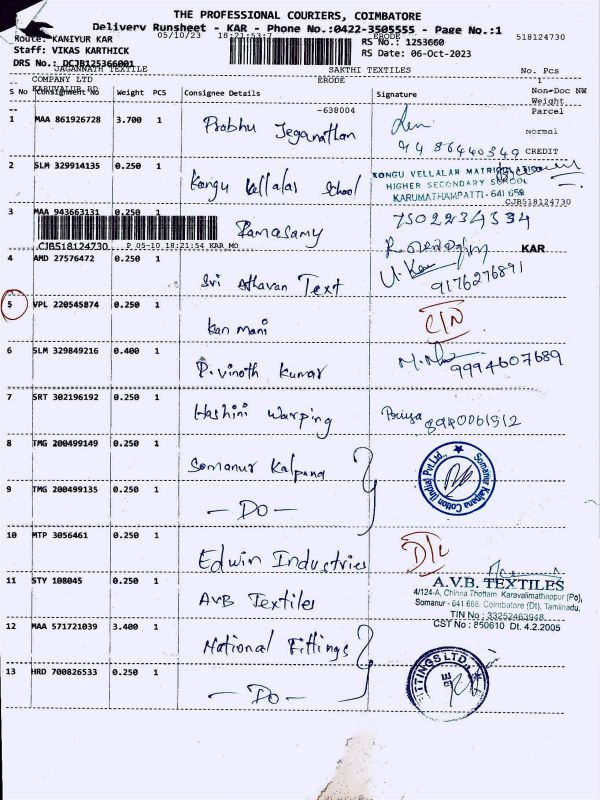 THE PROFESSIONAL COURIERS, COIMBATORE
Delivery Runsheet - KAR - Phone No.:0422-3505555 - Page No.:1
Route: KANIYUR KAR 05/10/23 18:21:53:7 ERODE 518124730
Staff: VIKAS KARTHICK RS No.: 1253660
DRS No.: DCJB125366001 RS Date: 06-Oct-2023
JAGANNATH TEXTILE SAKTHI TEXTILES No. Pcs
COMPANY LTD ERODE 1
KARUVALUR RD
S No Consignment No Weight PCS Consignee Details Signature Non-Doc NW
Weight
-638004 Parcel
1 MAA 861926728 3.700 1 Prabhu Jeganathan Normal
9486440349 CREDIT
2 SLM 329914135 0.250 1 Kongu Vellalar School KONGU VELLALAR MATRICULATION
HIGHER SECONDARY SCHOOL
KARUMATHAMPATTI - 641 659
CJB518124730
3 MAA 943663131 0.250 1 Ramasamy 7502234334
CJB518124730 P 05-10 18:21:54 KAR MO KAR
4 AMD 27576472 0.250 1 Sri Athavan Text 9176276891
5 VPL 220545874 0.250 1 Kanmani C/N
6 SLM 329849216 0.400 1 P. Vinoth Kumar 9994607689
7 SRT 302196192 0.250 1 Hashini Warping Priya 8940061912
8 TMG 200499149 0.250 1 Somanur Kalpana
Somanur Kalpana Cotton (India) Pvt Ltd.,
9 TMG 200499135 0.250 1 - DO -
10 MTP 3056461 0.250 1 Edwin Industries D/L
11 STY 108045 0.250 1 AVB Textiles A.V.B. TEXTILES
4/124-A, Chinna Thottam, Karavalimathappur (Po),
Somanur - 641 668, Coimbatore (Dt), Tamilnadu.
TIN No : 33252463948
CST No : 850610 Dt. 4.2.2005
12 MAA 571721039 3.400 1 National Fittings
FITTINGS LTD
13 HRD 700826533 0.250 1 - DO -